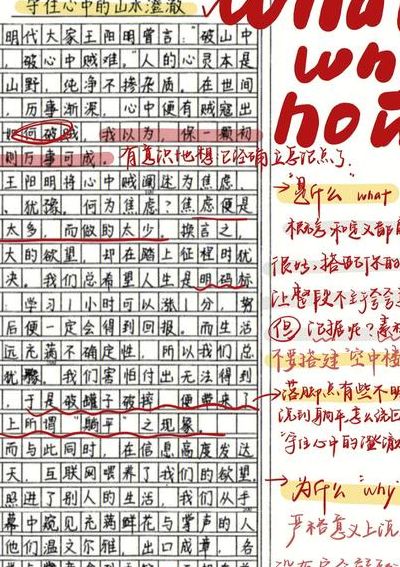 守住心中的山水澄澈
明代大家王阳明曾言："破山中
，破心中贼难。"人的心灵本是
山野，纯净不掺杂质。在世间
，历事渐深，心中便有贼寇出
如何破贼，我以为，保一颗初
则万事可成
王阳明将心中贼阐述为焦虑，
、犹豫。何为焦虑？焦虑便是
太多，而做的太少。换言之，
大的欲望，却在踏上征程时犹
决。我们总希望人生是明码标
，学习1小时可以涨1分，努
后便一定会得到回报。而生活
远充满不确定性，所以我们总
犹豫。我们害怕付出无法得到
，于是破罐子破摔，便带来了
上所谓"躺平"之现象。
而与此同时，在信息高度发达
天，互联网喂养了我们的欲望
照进了别人的生活，我们从手
幕中窥见充满鲜花与掌声的人
他们温文尔雅，出口成章，各
what
why
how
有意识地想已经确立总论点了
"是什么" what
概念和定义都
很好，搭配你的
让整段不至于夸夸
但 证据呢？素
不要搭建"空中楼
落脚点有些不明
说到躺平怎么绕回
"守住心中的澄澈
为什么"why
严格意义上说